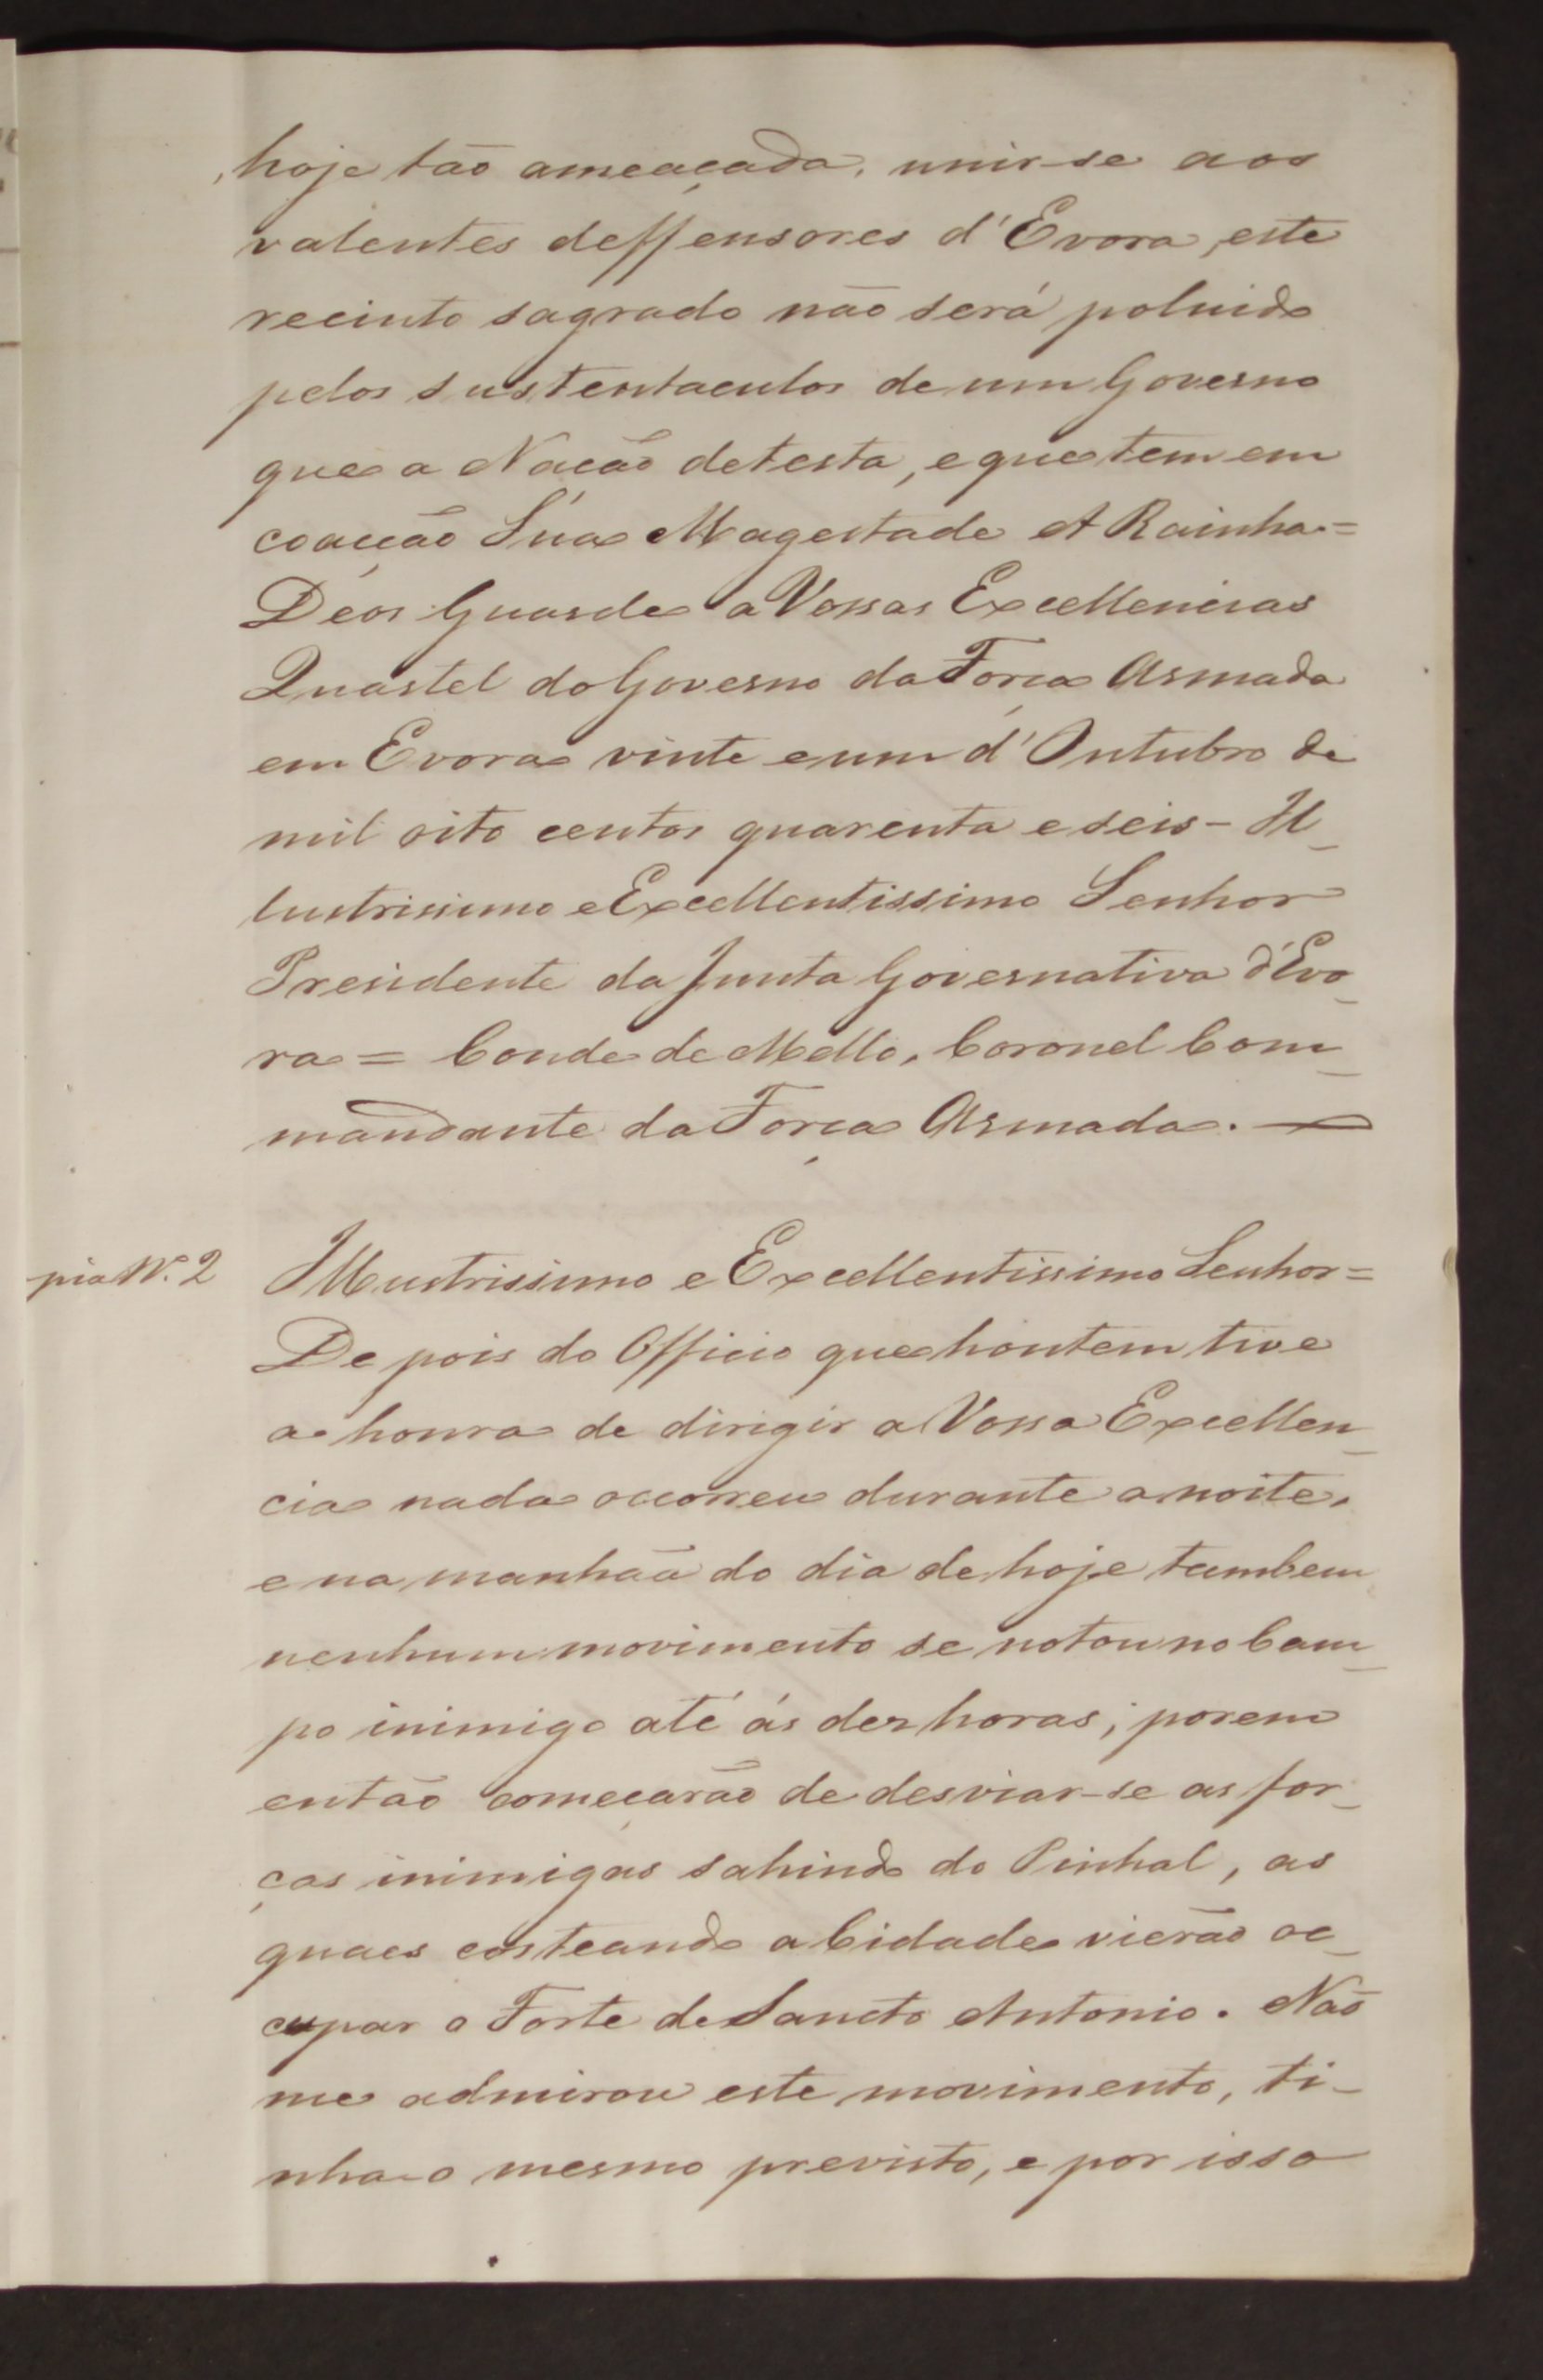 hoje tão ameaçada, unir-se aos
valentes deffensores d'Evora, este
recinto sagrado não será poluido
pelos sustentaculos de um Governo
que a Nacão detesta, e que tem em
coacção Súa Magestade A Rainha.=
Déos Guarde a Vossas Excellencias
Quartel do Governo da Força Armada
em Evora vinte e um d'Outubro de
mil oito centos quarenta e seis - Il_
lustrissimo e Excellentissimo Senhor
Presidente da Junta Governativa d'Evo_
ra = Conde de Mello, Coronel Com_
mandante da Força Armada. —
pia N.º 2 Illustrissimo e Excellentissimo Senhor=
De pois do Officio que hontem tive
a honra de dirigir a Vossa Excellen_
cia nada occorreu durante a noite,
e na manhaã do dia de hoje tambem
nenhum movimento se notou no Cam_
po inimigo até ás dez horas; porem
então começarão de desviar-se as for_
ças inimigas sahindo do Pinhal, as
quaes costeando a Cidade vierão oc_
cupar o Forte de Sancto Antonio. Não
me admirou este movimento, ti_
nha-o mesmo previsto, e por isso